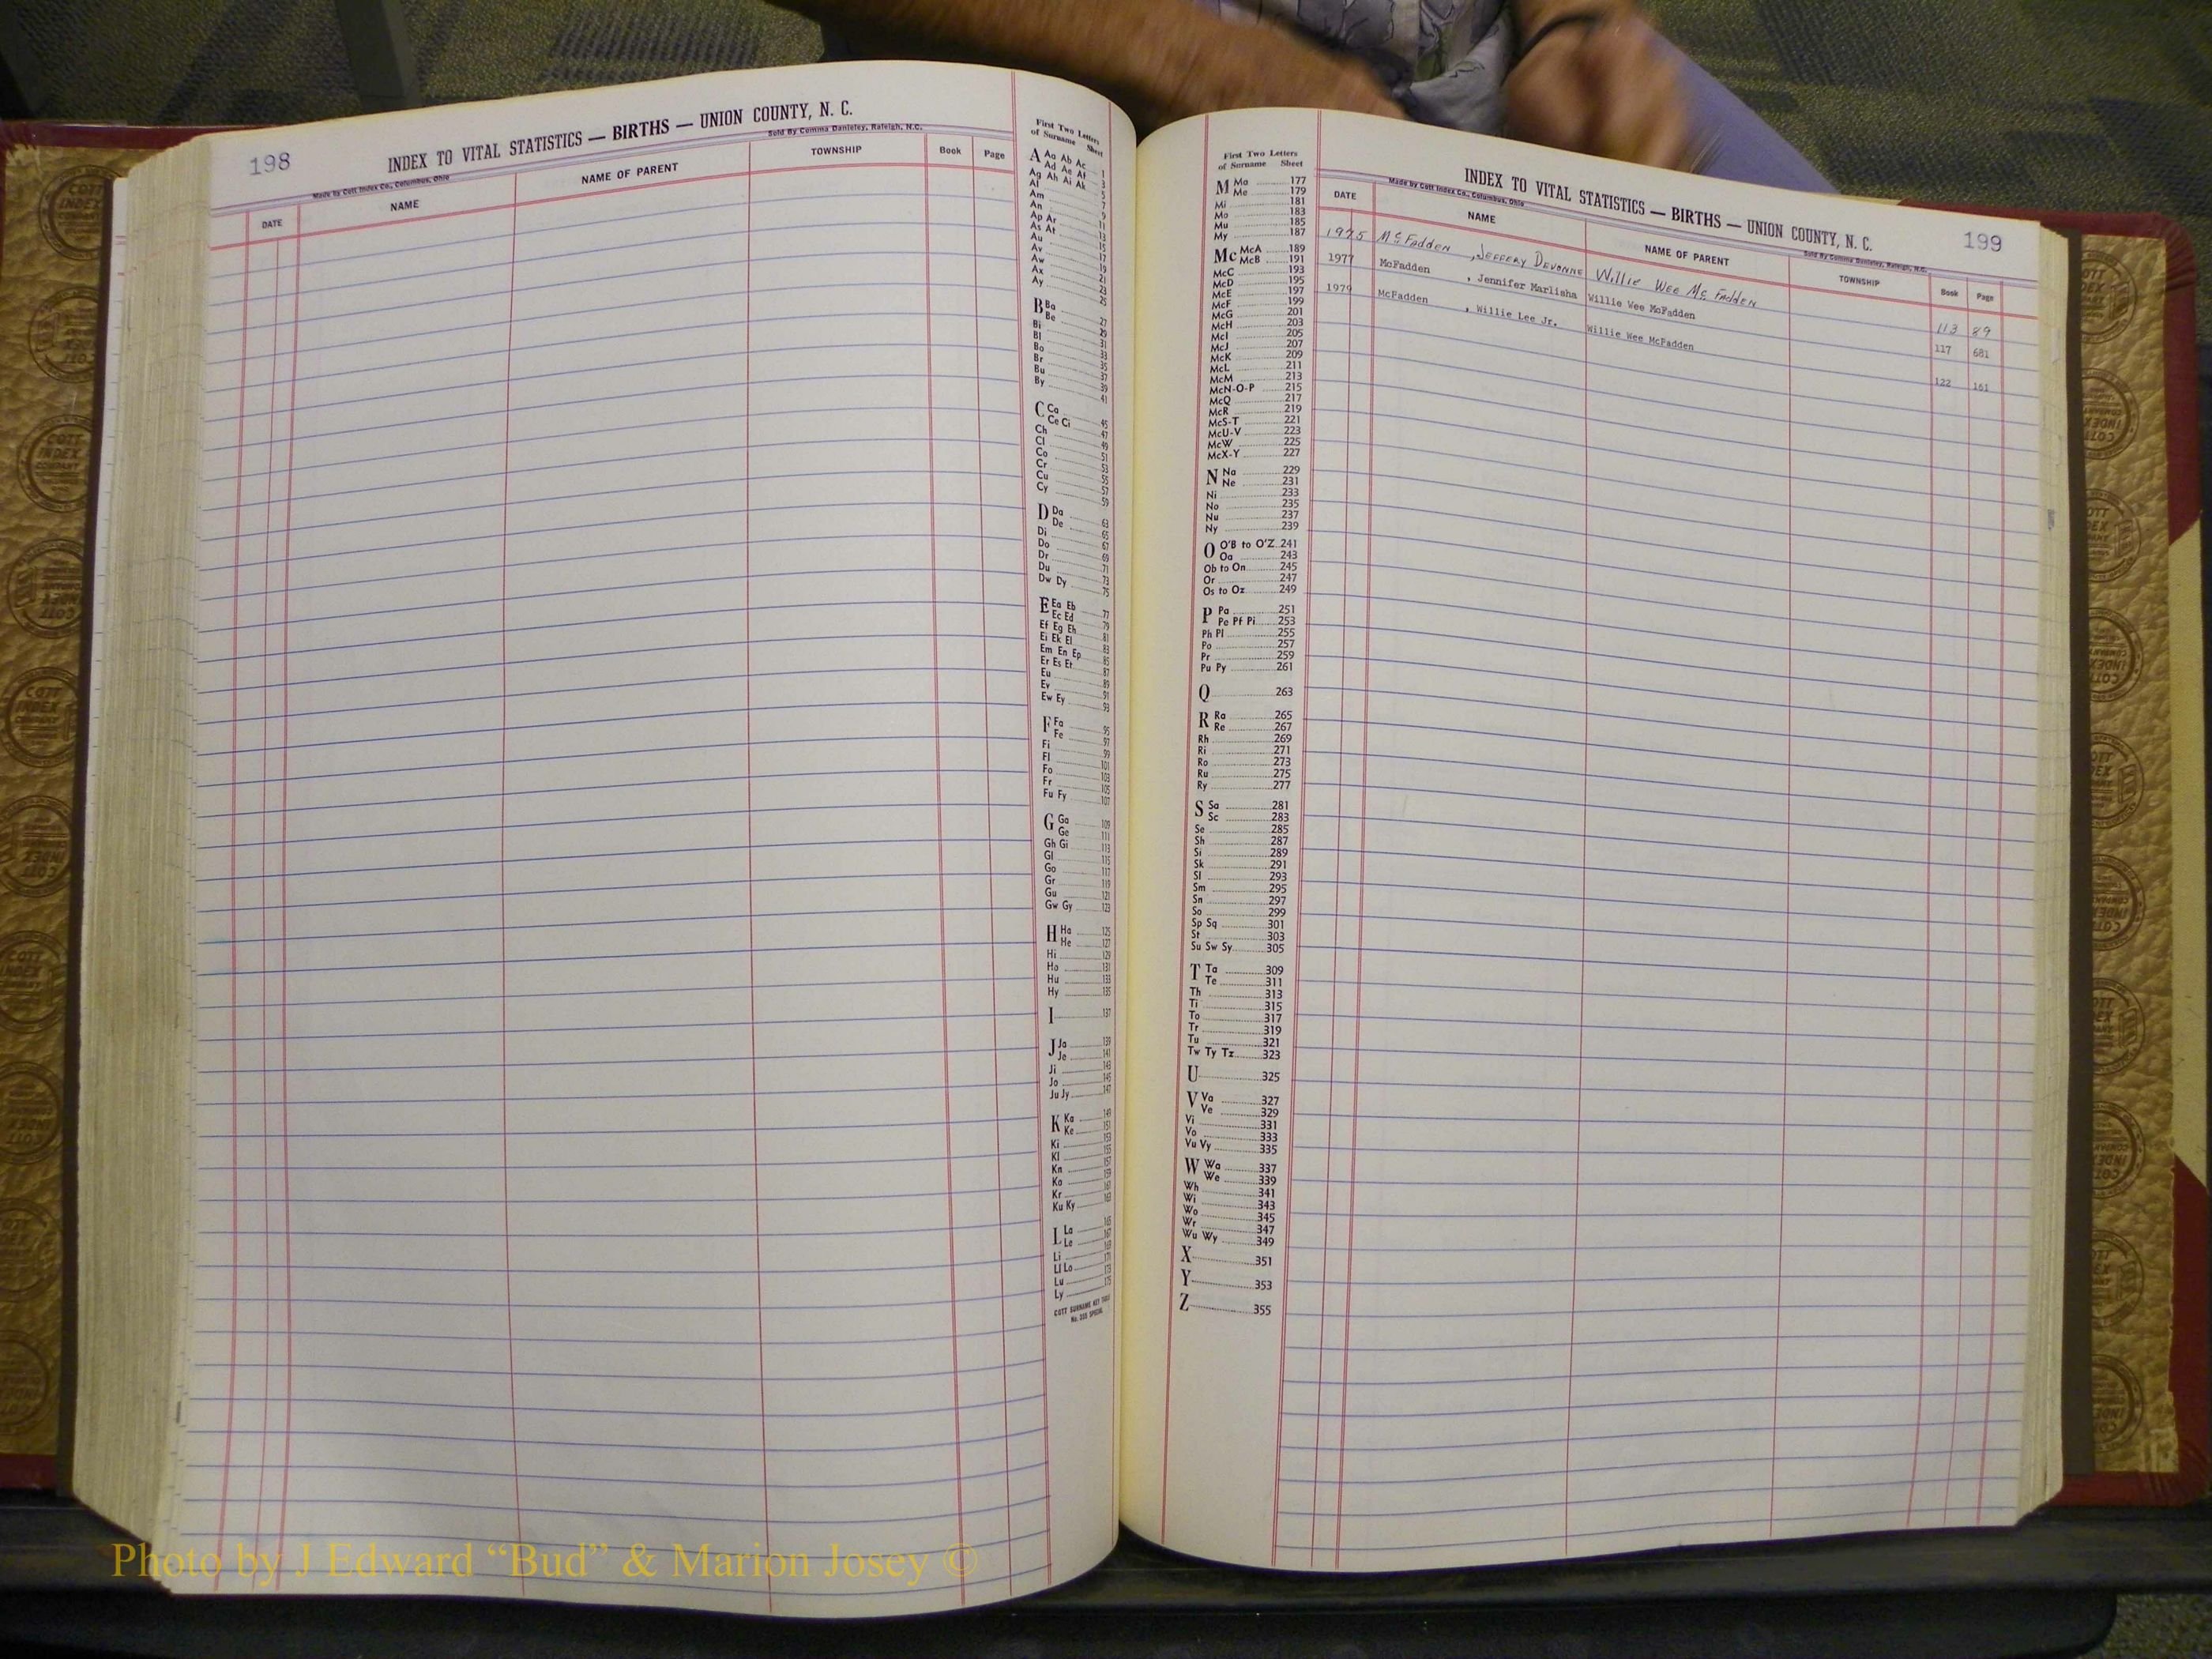 198
INDEX TO VITAL STATISTICS — BIRTHS — UNION COUNTY, N. C.
Made by Cott Index Co., Columbus, Ohio
Sold By Comma Danieley, Raleigh, N.C.
DATE NAME NAME OF PARENT TOWNSHIP Book Page
First Two Letters
of Surname Sheet
A Aa Ab Ac 1
Ad Ae Af 3
Ag Ah Ai Ak 5
Al 7
Am 9
An 11
Ap Ar 13
As At 15
Au 17
Av 19
Aw 21
Ax 23
Ay 25
B Ba 27
Be 29
Bi 31
Bl 33
Bo 35
Br 37
Bu 39
By 41
C Ca 45
Ce Ci 47
Ch 49
Cl 51
Co 53
Cr 55
Cu 57
Cy 59
D Da 63
De 65
Di 67
Do 69
Dr 71
Du 73
Dw Dy 75
E Ea Eb 77
Ec Ed 79
Ef Eg Eh 81
Ei Ek El 83
Em En Ep 85
Er Es Et 87
Eu 89
Ev 91
Ew Ey 93
F Fa 95
Fe 97
Fi 99
Fl 101
Fo 103
Fr 105
Fu Fy 107
G Ga 109
Ge 111
Gh Gi 113
Gl 115
Go 117
Gr 119
Gu 121
Gw Gy 123
H Ha 125
He 127
Hi 129
Ho 131
Hu 133
Hy 135
I 137
J Ja 139
Je 141
Ji 143
Jo 145
Ju Jy 147
K Ka 149
Ke 151
Ki 153
Kl 155
Kn 157
Ko 159
Kr 161
Ku Ky 163
L La 165
Le 167
Li 169
Ll Lo 171
Lu 173
Ly 175
COTT SURNAME KEY TABLE
First Two Letters
of Surname Sheet
M Ma 177
Me 179
Mi 181
Mo 183
Mu 185
My 187
Mc McA 189
McB 191
McC 193
McD 195
McE 197
McF 199
McG 201
McH 203
McI 205
McJ 207
McK 209
McL 211
McM 213
McN-O-P 215
McQ 217
McR 219
McS-T 221
McU-V 223
McW 225
McX-Y 227
N Na 229
Ne 231
Ni 233
No 235
Nu 237
Ny 239
O O'B to O'Z 241
Oa 243
Ob to On 245
Or 247
Os to Oz 249
P Pa 251
Pe Pf Pi 253
Ph Pl 255
Po 257
Pr 259
Pu Py 261
Q 263
R Ra 265
Re 267
Rh 269
Ri 271
Ro 273
Ru 275
Ry 277
S Sa 281
Sc 283
Se 285
Sh 287
Si 289
Sk 291
Sl 293
Sm 295
Sn 297
So 299
Sp Sq 301
St 303
Su Sw Sy 305
T Ta 309
Te 311
Th 313
Ti 315
To 317
Tr 319
Tu 321
Tw Ty Tz 323
U 325
V Va 327
Ve 329
Vi 331
Vo 333
Vu Vy 335
W Wa 337
We 339
Wh 341
Wi 343
Wo 345
Wr 347
Wu Wy 349
X 351
Y 353
Z 355
INDEX TO VITAL STATISTICS — BIRTHS — UNION COUNTY, N. C.
199
Made by Cott Index Co., Columbus, Ohio
Sold By Comma Danieley, Raleigh, N.C.
DATE NAME NAME OF PARENT TOWNSHIP Book Page
1975 McFadden , Jeffery Devonne Willie Wee McFadden 113 89
1977 McFadden , Jennifer Marlisha Willie Wee McFadden 117 681
1979 McFadden , Willie Lee Jr. Willie Wee McFadden 122 161
Photo by J Edward “Bud” & Marion Josey ©